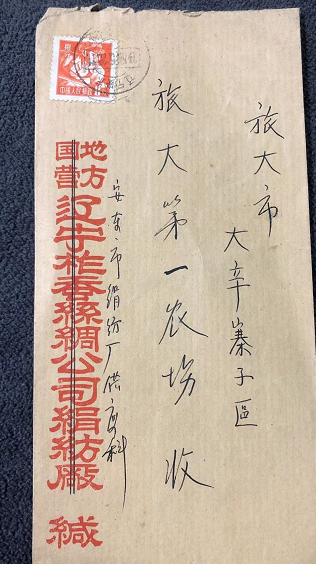 旅大市
大辛寨子區
旅大第一农场 收
安东市绢纺厂供应科
地方
国营
辽宁柞蚕絲綢公司絹紡廠 緘
中国人民邮政